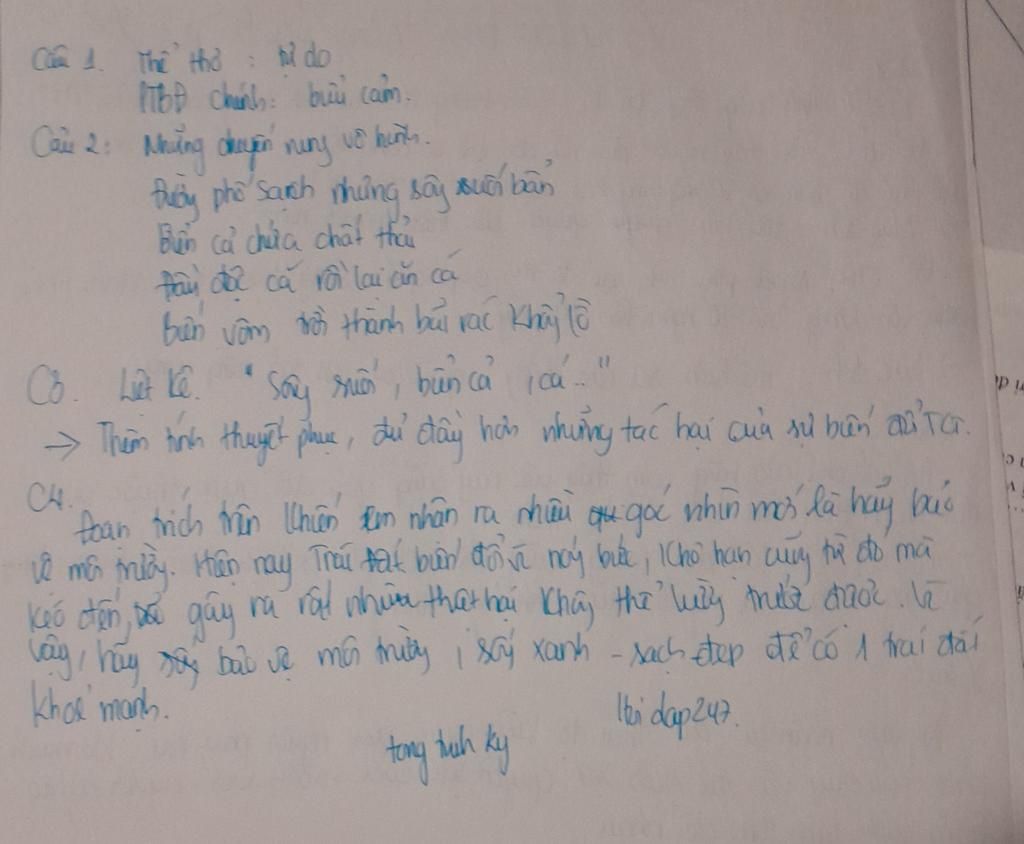 Câu 1. Thể thơ : tự do
PTBĐ chính: biểu cảm.
Câu 2: Những chuyện nung vô hình.
Đường phố sanh những sông suối bẩn
Biển cả chứa chất thải
Đầu độc cá rồi lại ăn cá
biến vòm trời thành bãi rác khổng lồ
C3. Liệt kê. "Sông suối, biển cả, cá..."
→ Thêm tính thuyết phục, đủ đầy hơn những tác hại của sự biến đổi TĐ.
C4.
Đoạn trích trên khiến em nhận ra nhiều góc nhìn mới là hãy bảo
vệ môi trường. Hiện nay Trái đất biến đổi vì nóng bức, khô hạn cũng từ đó mà
kéo đến, gây ra rất nhiều thiệt hại không thể lường trước được. Vì
vậy, hãy bảo vệ môi trường, sống xanh - sạch đẹp để có 1 trái đất
khoẻ mạnh.
Hoi dap247.
tong tinh ky